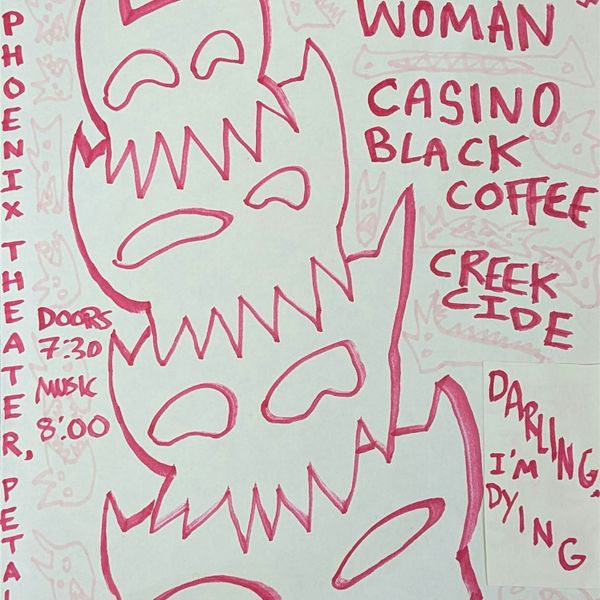 PHOENIX THEATER, PETAL
WOMAN
CASINO
BLACK
COFFEE
CREEK
CIDE
DOORS
7:30
MUSIC
8:00
DARLING,
I'M
DYING